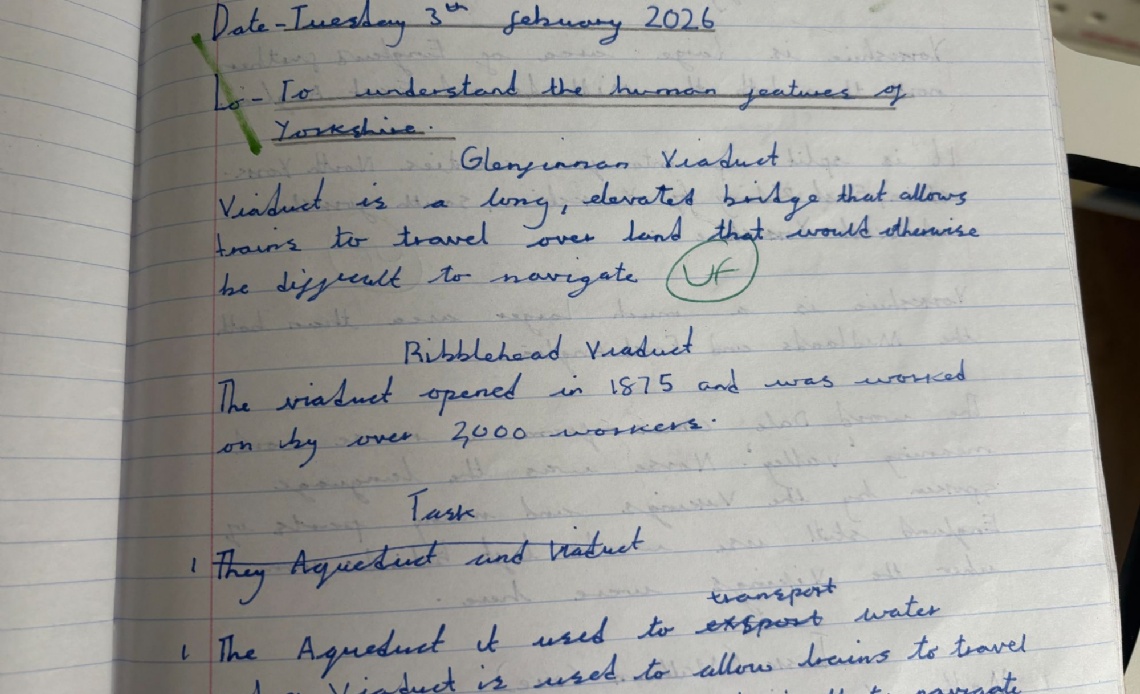 Date-Tuesday 3th february 2026
Lo - To understand the human features of
Yorkshire.
Glenfinnan Viaduct
Viaduct is a long, elevated bridge that allows
trains to travel over land that would otherwise
be difficult to navigate UF
Ribblehead Viaduct
The viaduct opened in 1875 and was worked
on by over 2,000 workers.
Task
1 They Aqueduct and Viaduct
transport
1 The Aqueduct it used to exsport water
Viaduct is used to allow trains to travel
to navigate